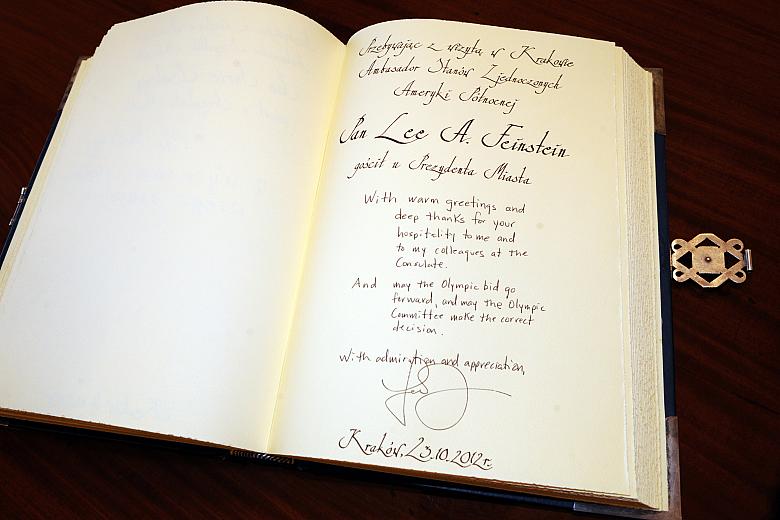 Przebywając z wizytą w Krakowie
Ambasador Stanów Zjednoczonych
Ameryki Północnej
Pan Lee A. Feinstein
gościł u Prezydenta Miasta
With warm greetings and
deep thanks for your
hospitality to me and
to my colleagues at the
Consulate.
And may the Olympic bid go
forward, and may the Olympic
Committee make the correct
decision.
With admiration and appreciation,
Lee
Kraków, 23.10.2012r.